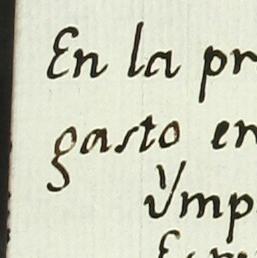 En la pr
gasto en
Ymp